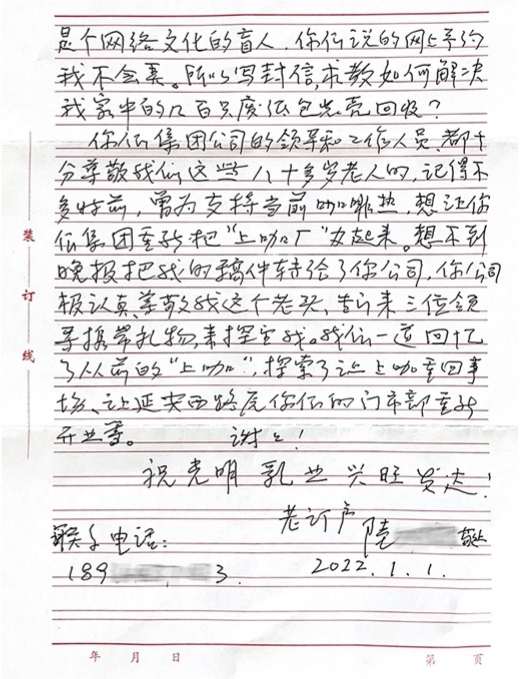 是个网络文化的盲人，你们说的网上予约
我不会弄。所以写封信，求教如何解决
我家中的几百只废纸包光亮回收？
你们集团公司的领导和工作人员，都十
分尊敬我们这些八十多岁老人的，记得不
多时前，曾为支持当前咖啡热，想让你
们集团重新把“上咖厂”办起来。想不到
晚报把我的稿件转给了你公司，你公司
极认真尊敬我这个老头，先来三位领
导携带礼物来探望我。我们一道回忆
了从前的“上咖”，探索了让上咖重回市
场、让延安西路底你们的门市部重新
开业等。 谢谢！
祝光明乳业兴旺发达！
老订户 陆 敬上
联系电话：
189 3.
2022.1.1.
装
订
线
年 月 日
第 页